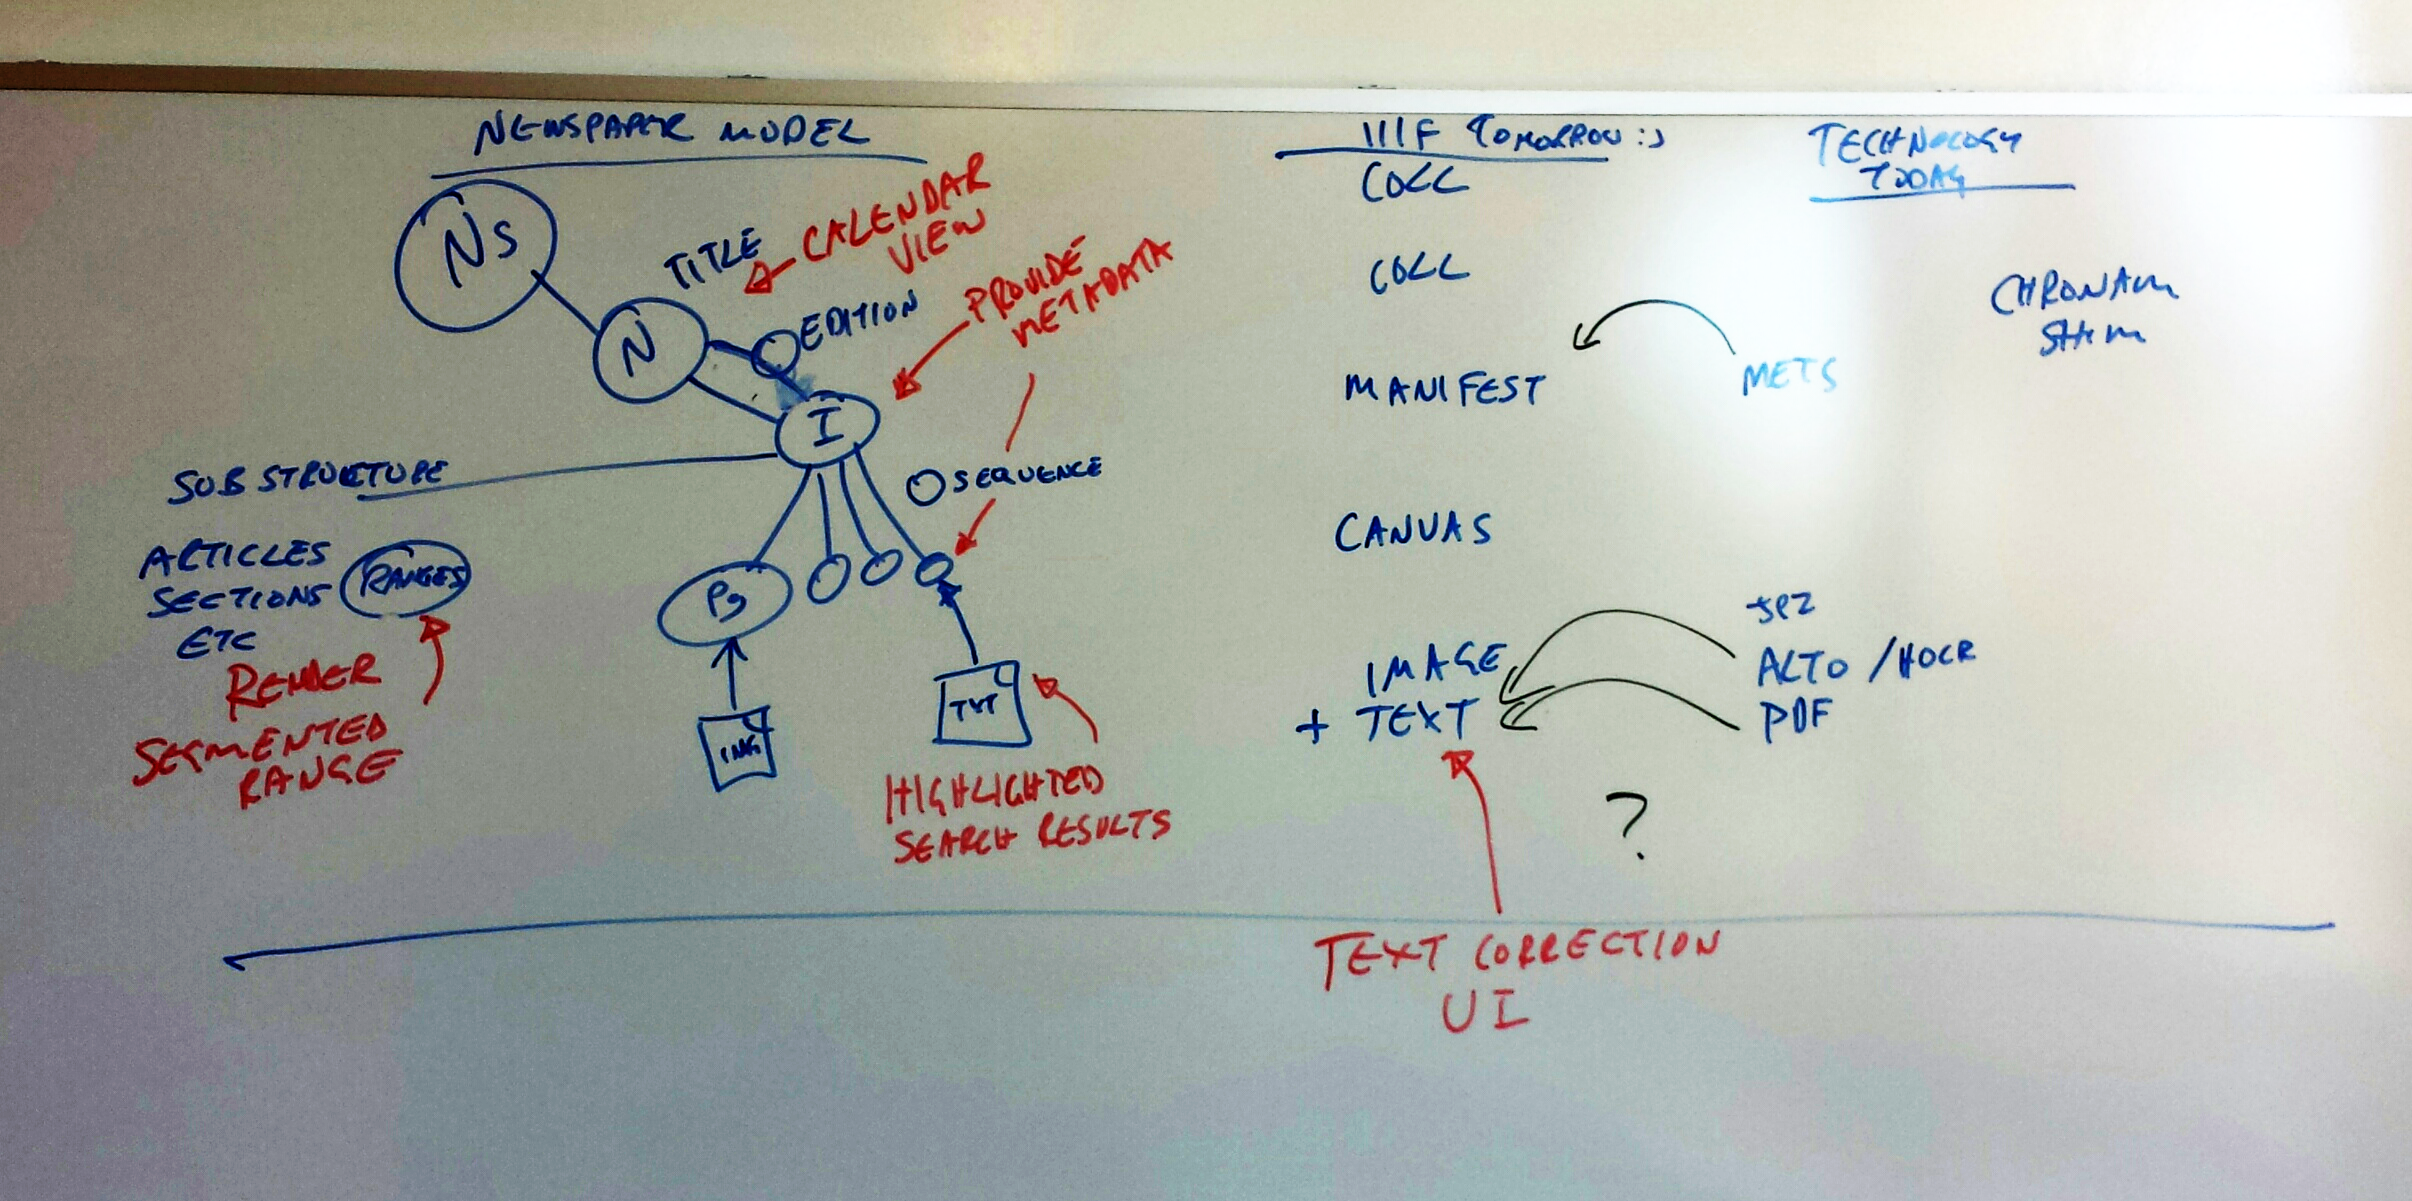 NEWSPAPER MODEL
NS
N
TITLE
CALENDAR
VIEW
EDITION
PROVIDE
METADATA
I
SUB STRUCTURE
SEQUENCE
ARTICLES
SECTIONS
ETC
RANGES
Pg
RENDER
SEGMENTED
RANGE
IMG
TXT
HIGHLIGHTED
SEARCH RESULTS
IIIF TOMORROW :)
COLL
COLL
MANIFEST
CANVAS
IMAGE
+ TEXT
TEXT CORRECTION
UI
TECHNOLOGY
TODAY
CHRONAM
SHIM
METS
JP2
ALTO / HOCR
PDF
?